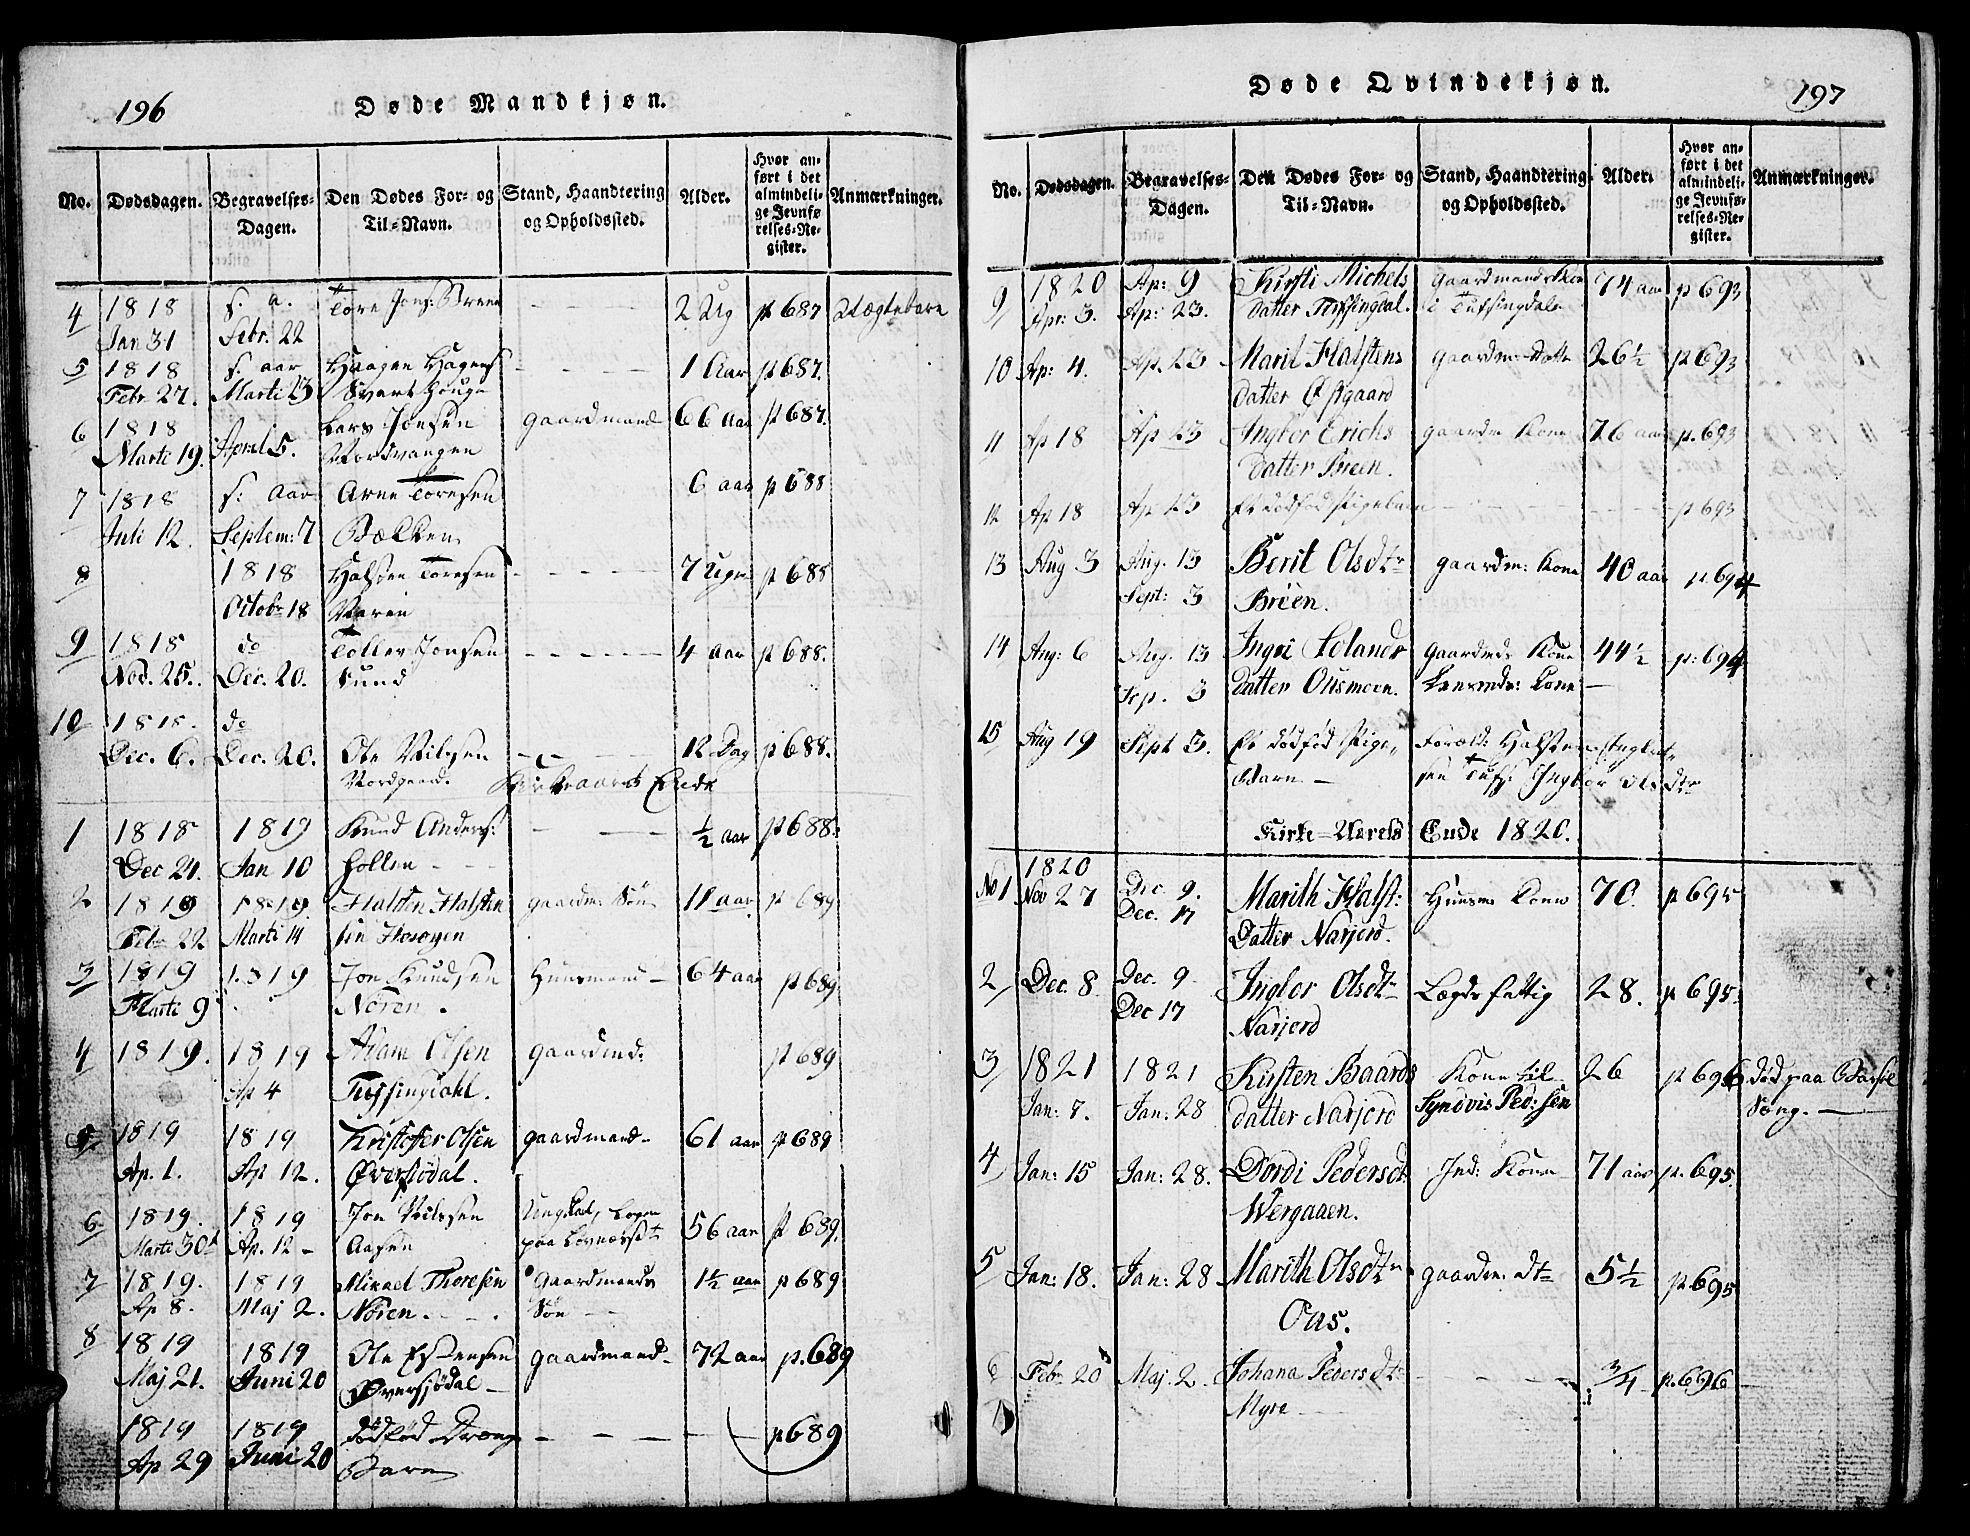 196
Døde Mandkjøn.
No. Dødsdagen. Begravelses-Dagen. Den Dødes For- og Til-Navn. Stand, Haandtering og Opholdssted. Alder. Hvor anført i det almindelige Jevnførelses-Register. Anmærkninger.
4 1818 s. a. Tore Jons: Breen — — — 2 Ug p 687
Jan 31 Febr. 22
5 1818 s. aar Haagen Hagens — — — 1 Aar p 687.
Febr. 27. Marti 23
6 1818 Lars Jonsen gaardmand 66 aar p 687.
Marti 19. April 5. Nordvangen
7 1818 s: aar Arne Toresen 6 aar p 688
Juli 12. Septem: 7 Bækken
8 1818 Halsten Toresen — — — 7 Uger p 688
Octobr 18
9 1818 do Toller Jonsen — — — 4 aar p 688.
Nov. 25. Dec. 20. Sund
10 1818. do
Dec. 6. Dec. 20. Ole Nilssen — — 12 Dag p 688.
Nordgaard. Kirkeaarets Ende
1 1818 1819 Knud Anders: — — ½ aar p 688.
Dec 24. Jan 10
2 1819 1819. Halsten Halsten gaardm: Søn 11 aar p 689
Febr 22 Marti 14 sen
3 1819 1819 Jon Knudsen Huusmand — 64 aar p 689
Marti 9 Noren.
4 1819. 1819 Adam Olsen gaardmd: p 689
Ap 4 Tussingdahl.
5 1819 1819 Kristofer Olsen gaardmand — 61 aar p 689
Ap. 1. Ap 12. Øversjødal.
6 1819. 1819 Jon Nilssen 56 aar p 689.
Marti 30 Ap. 12 — Aasen
7 1819. 1819 Mikael Thoresen Gaardmands 1½ aar p 689
Ap 8. Maj 2. Nøren. Søn —
8 1819 1819 Ole Estensen gaardmand — 72 aar p. 689
Maj 21. Juni 20 Øversjødal —
1819 1819 dødfød Drenge — — — p 689
Ap 29 Juni 20 Barn
197
Døde Qvindekjøn.
No. Dødsdagen. Begravelses-Dagen. Den Dødes For- og Til-Navn. Stand, Haandtering og Opholdssted. Alder. Hvor anført i det almindelige Jevnførelses-Register. Anmærkninger.
9 1820 Ap: 9 Kirsti Michels 74 aar p 693
Apr: 3. Ap: 23. datter Tussingdal. i Tufsingdalen
10 Ap: 4. Ap. 23 Marit Halstens gaardm: Datt 26½ p 693
datter Østgaard
11 Ap 18 Ap 23 Ingbor Erichs gaardm Kone 76 aar p. 693
datter Breen.
12 Ap 18 Ap 23 Et dødfød Pigebarn — — — p 693
13 Aug 3 Aug. 13 Berit Olsdtr gaardm: Kone 40 aar p. 694
Sept: 3 Breen.
14 Aug: 6 Aug. 13 Ingri gaardmds Kone 44½ p: 694
Sep. 3 datter Lensmds: Kone —
15 Aug 19 Sept 3. Et dødfød Pige, Foræld: Halsten
Barn — Ingbor Olsdtr
Kirke-Aarets Ende 1820.
1820
No 1 Nov 27 Dec. 9. Marith Halst: Huusm Kone 70. p 695
Dec. 17 Datter Narjord.
2 Dec. 8 Dec. 9 Ingbor Olsdtr Lægds fattig 28. p 695.
Dec 17 Narjord
3 1821 1821 Kirsten Baards Kone til 26 p 696 død paa Barsel
Jan: 7. Jan: 28 datter Narjord Synøvis Ped: sen Seng. —
4 Jan: 15 Jan: 28. Dordi Pedersdt. Ind: Kone 71 aar p. 695.
Wergaaen.
5 Jan: 18. Jan: 28 Marith Olsdtr gaardm: dtr 5½ p 695
Oas.
6 Febr 20 Maj. 2. Johana Pedersdtr — — — ¾ p. 696
Myre —